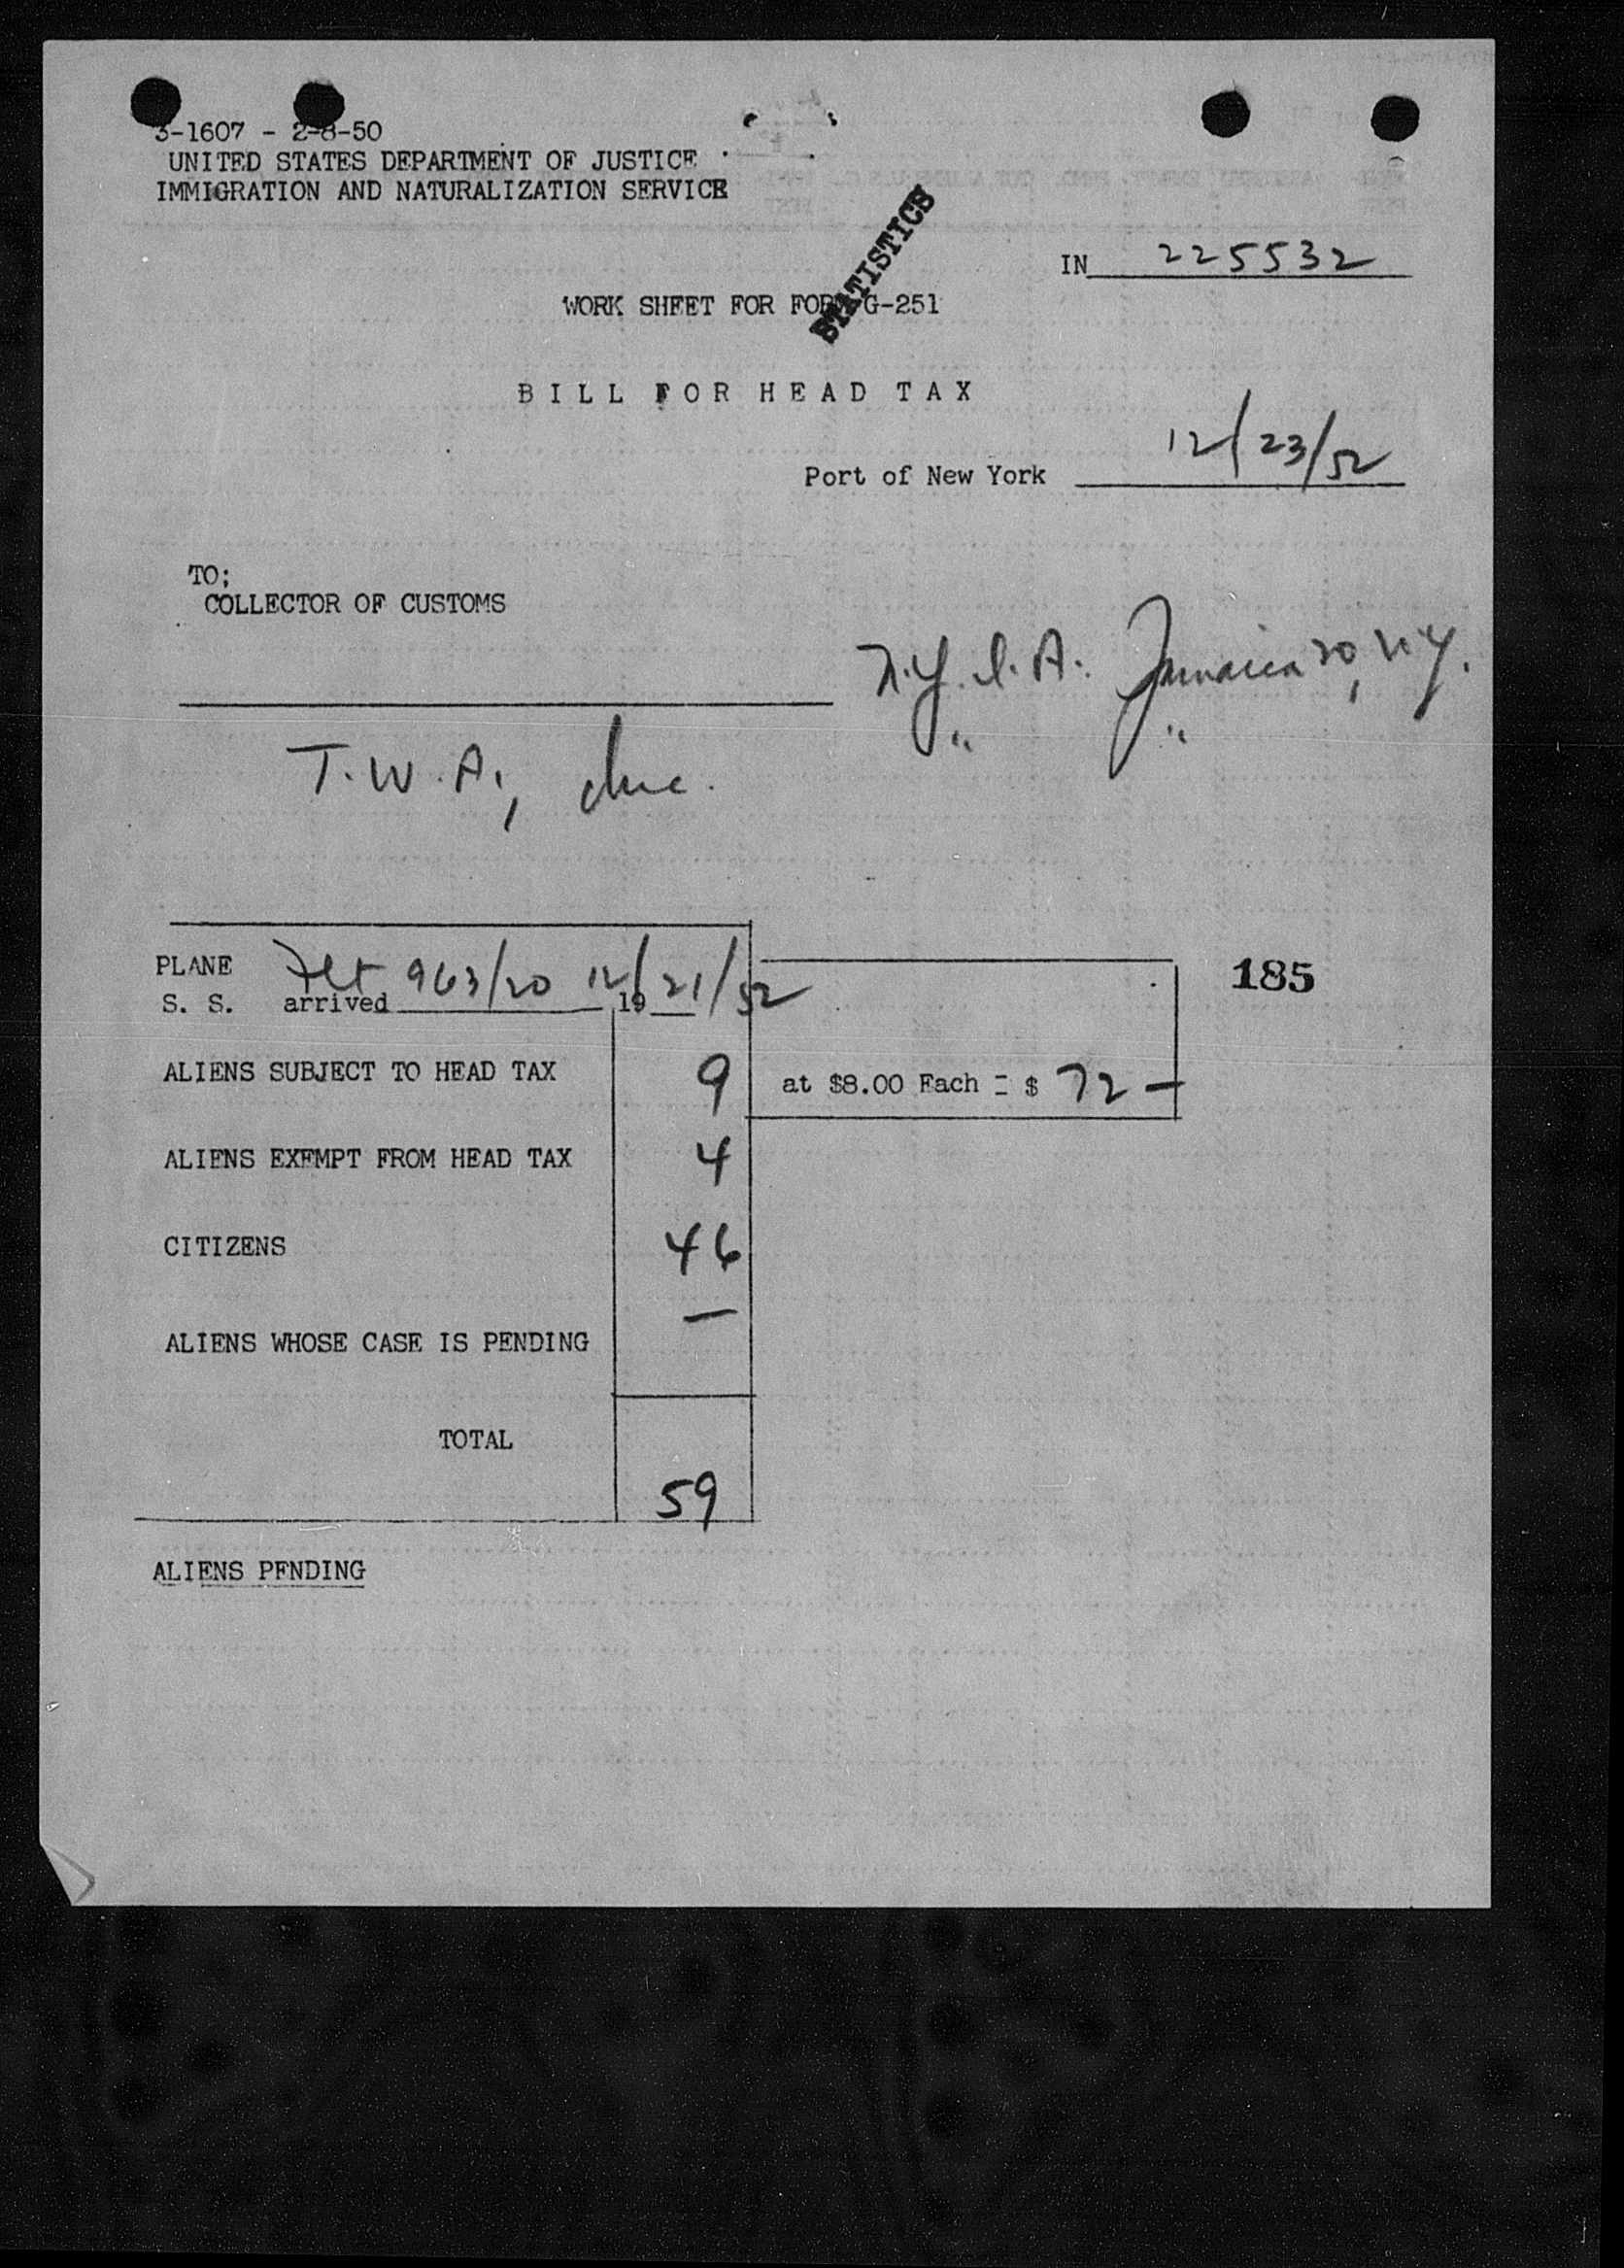 3-1607 - 2-8-50
UNITED STATES DEPARTMENT OF JUSTICE
IMMIGRATION AND NATURALIZATION SERVICE
STATISTICS
IN 225532
WORK SHEET FOR FORM G-251
BILL FOR HEAD TAX
Port of New York 12/23/52
TO:
COLLECTOR OF CUSTOMS
N.Y.I.A. Jamaica 30, N.Y.
" "
T.W.A., Inc.
PLANE Flt 963/20 12/21/52
S. S. arrived 19
185
ALIENS SUBJECT TO HEAD TAX 9 at $8.00 Each = $ 72 —
ALIENS EXEMPT FROM HEAD TAX 4
CITIZENS 46
ALIENS WHOSE CASE IS PENDING —
TOTAL
59
ALIENS PENDING